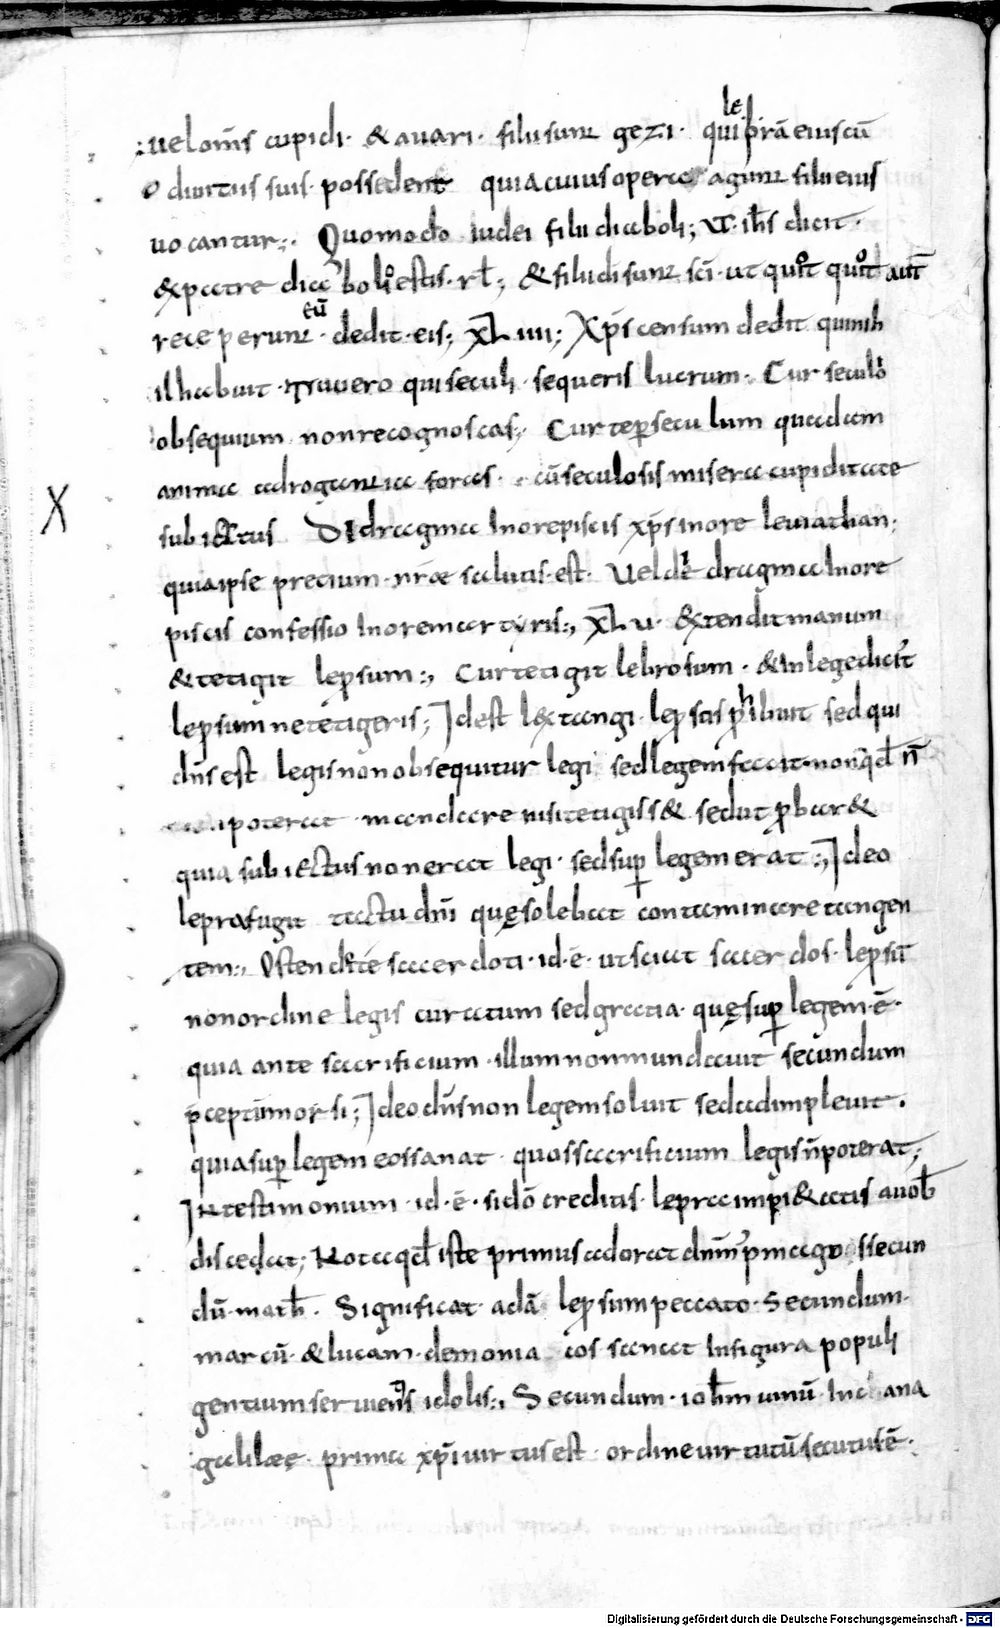 uel om̄s cupidi· & auari· filii sunt gezi· qui le p̄rā eius cū
diuitiis suis· possedent quia cuius opera agunt filii eius
uocantur;· Quomodo iudei filii diaboli; ut· ih̄s dicit·
& patre diabolo estis· rł; & filii di sunt sc̄i· ut quot̄quot aut̄
receperunt eū· dedit· eis; XLIIII; Xp̄s censum dedit qui nih
il habuit· Tu uero qui seculi· sequeris lucrum· Cur seculo
obsequium non recognoscas; Cur te per seculum quadam
animae adrogantia foras· cū seculo sis misera cupiditate
subiectus Didragma In ore piscis xp̄s in ore leuiathan·
quia ipse precium· nr̄ae salutis· est· Uel de dragma In ore
piscis confessio In ore martyris:, XLV· Extendit manum
& tetigit lepsum:, Cur tetigit lebrosum· & In lege dicit̄
lepsum ne tetigeris; Idest lex tangi· lepsos p̄hibuit sed qui
dn̄s est legis non obsequitur legi sed legem facit· non qđ n̄
poterat mandare nisi tetigiss& sed ut p̄bar&
quia subiectus non erat legi· sed sup legem erat:, Ideo
lepra fugit tactu dn̄i quę solebat contaminare tangen
tem:, Ostende te sacerdoti· id·ē· ut sciat sacerdos· lepsū
non ordine legis curatum sed gratia· quę sup legem·ē·
quia ante sacrificium· illum non mundauit secundum
p̄ceptum morsi; Ideo dn̄s non legem soluit sed adimpleuit·
quia sup legem eos sanat· quos sacrificium legis n̄ poterat;
In testimonium· id·ē· si dō creditis· lepra impi&atis a uob̄
discedat; Nota qđ iste primus adorat dnm̄ p̄ mago s secun
dū· math̄· Significat adā lepsum peccato· Secundum·
marcū· & lucam· demonia eos sanat In figura populi
gentium seruiens idolis:, Secundum· ioh̄m uinū· In chana
galilaeę· prima xp̄i uirtus est· ordine uirtutū secutus·ē·
X